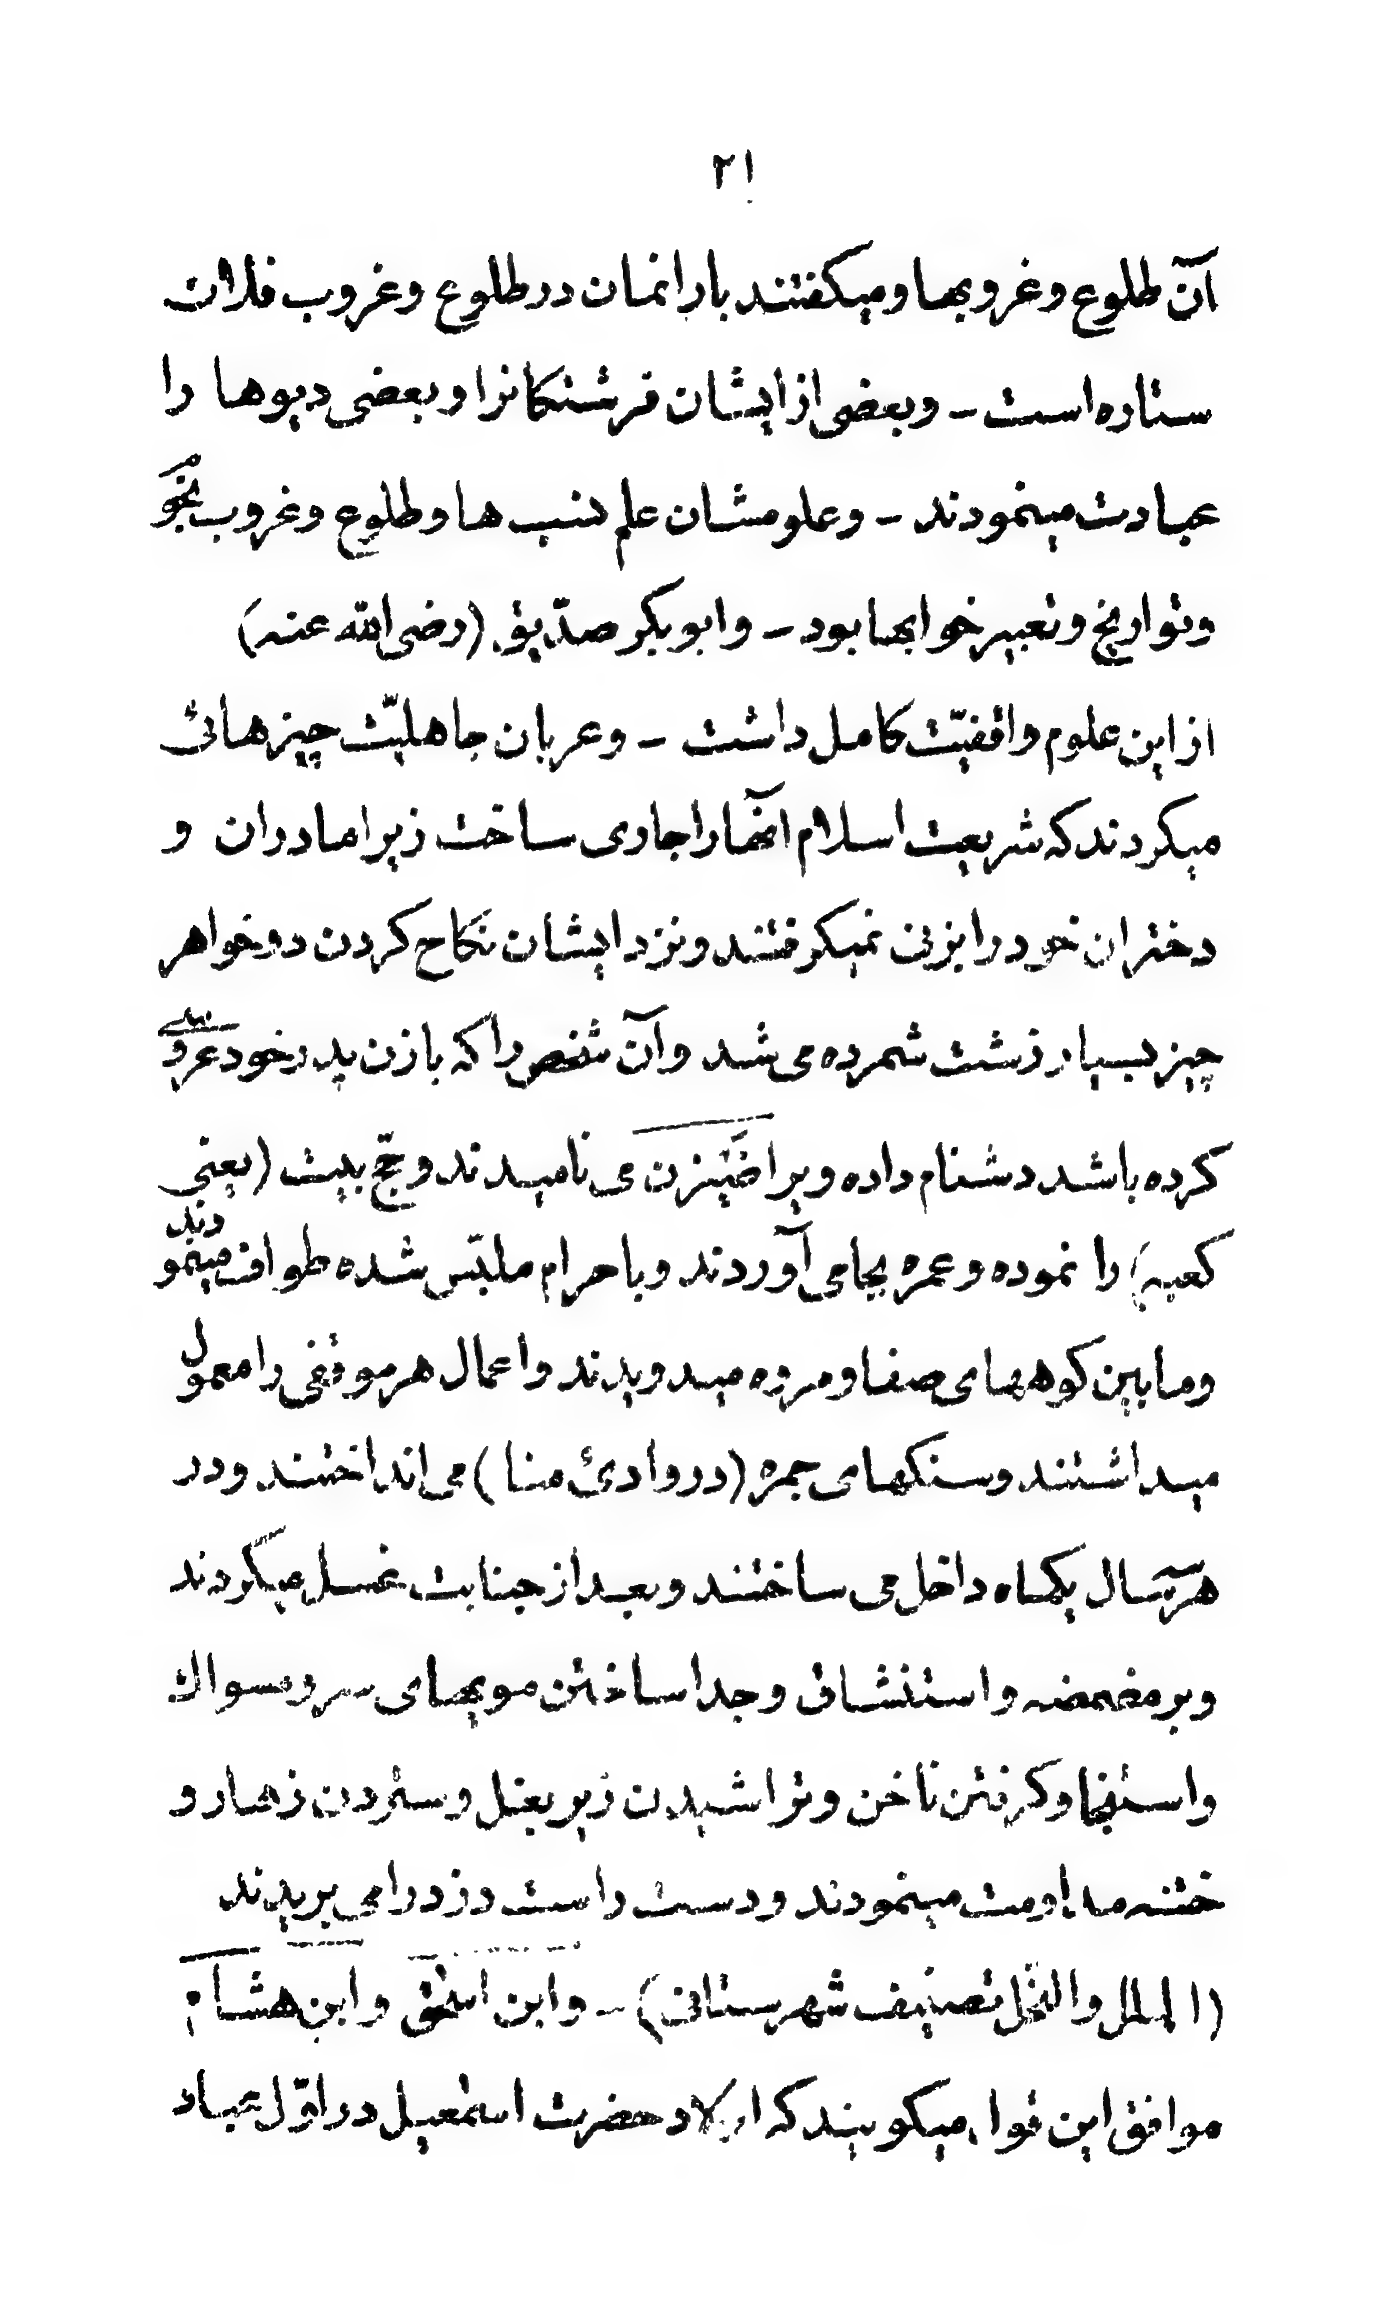 ٢١
آن طلوع وغروبها ومیکفتند بارانمان در طلوع وغروب فلان
ستاره است – وبعضی از ایشان فرشتکانرا وبعضی دیوها را
عبادت مینمودند – وعلومشان علم نسب ها وطلوع وغروب نجوم
وتواریخ وتعبیر خوابها بود – وابو بکر صدّیق (رضی الله عنه)
از این علوم واقفیّت کامل داشت – وعربان جاهلیّت چیزهائی
میکردند که شریعت اسلام آنها را جاری ساخت زیرا مادران و
دختران خود را بزنی نمیکرفتند ونزد ایشان نکاح کردن دو خواهر
چیز بسیار زشت شمرده می شد وآن شخص را که با زن پدر خود عروسی
کرده باشد دشنام داده ویرا ضَیْزن می نامیدند وحجّ بیت (یعنی
کعبه) را نموده وعمره بجا می آوردند وبا حرام ملبّس شده طواف مینمودند
وما بین کوههای صفا ومروه میدویدند واعمال هر موقفی را معمول
میداشتند وسنکهای جمره (در وادئ منا) می انداختند ودر
هر سه سال یکماه داخل می ساختند وبعد از جنابت غسل میکردند
وبر مضمضه واستنشاق وجدا ساختن مویهای سر ومسواك
واستنجا وکرفتن ناخن وتراشیدن زیر بغل وستردن زهار و
ختنه مداومت مینمودند ودست راست دزد را می بریدند
(الملل والنّحل تصنیف شهرستانی) – وابن اسحٰق وابن هشام
موافق این قول میکویند که اولاد حضرت اسمٰعیل در اوّل عباد